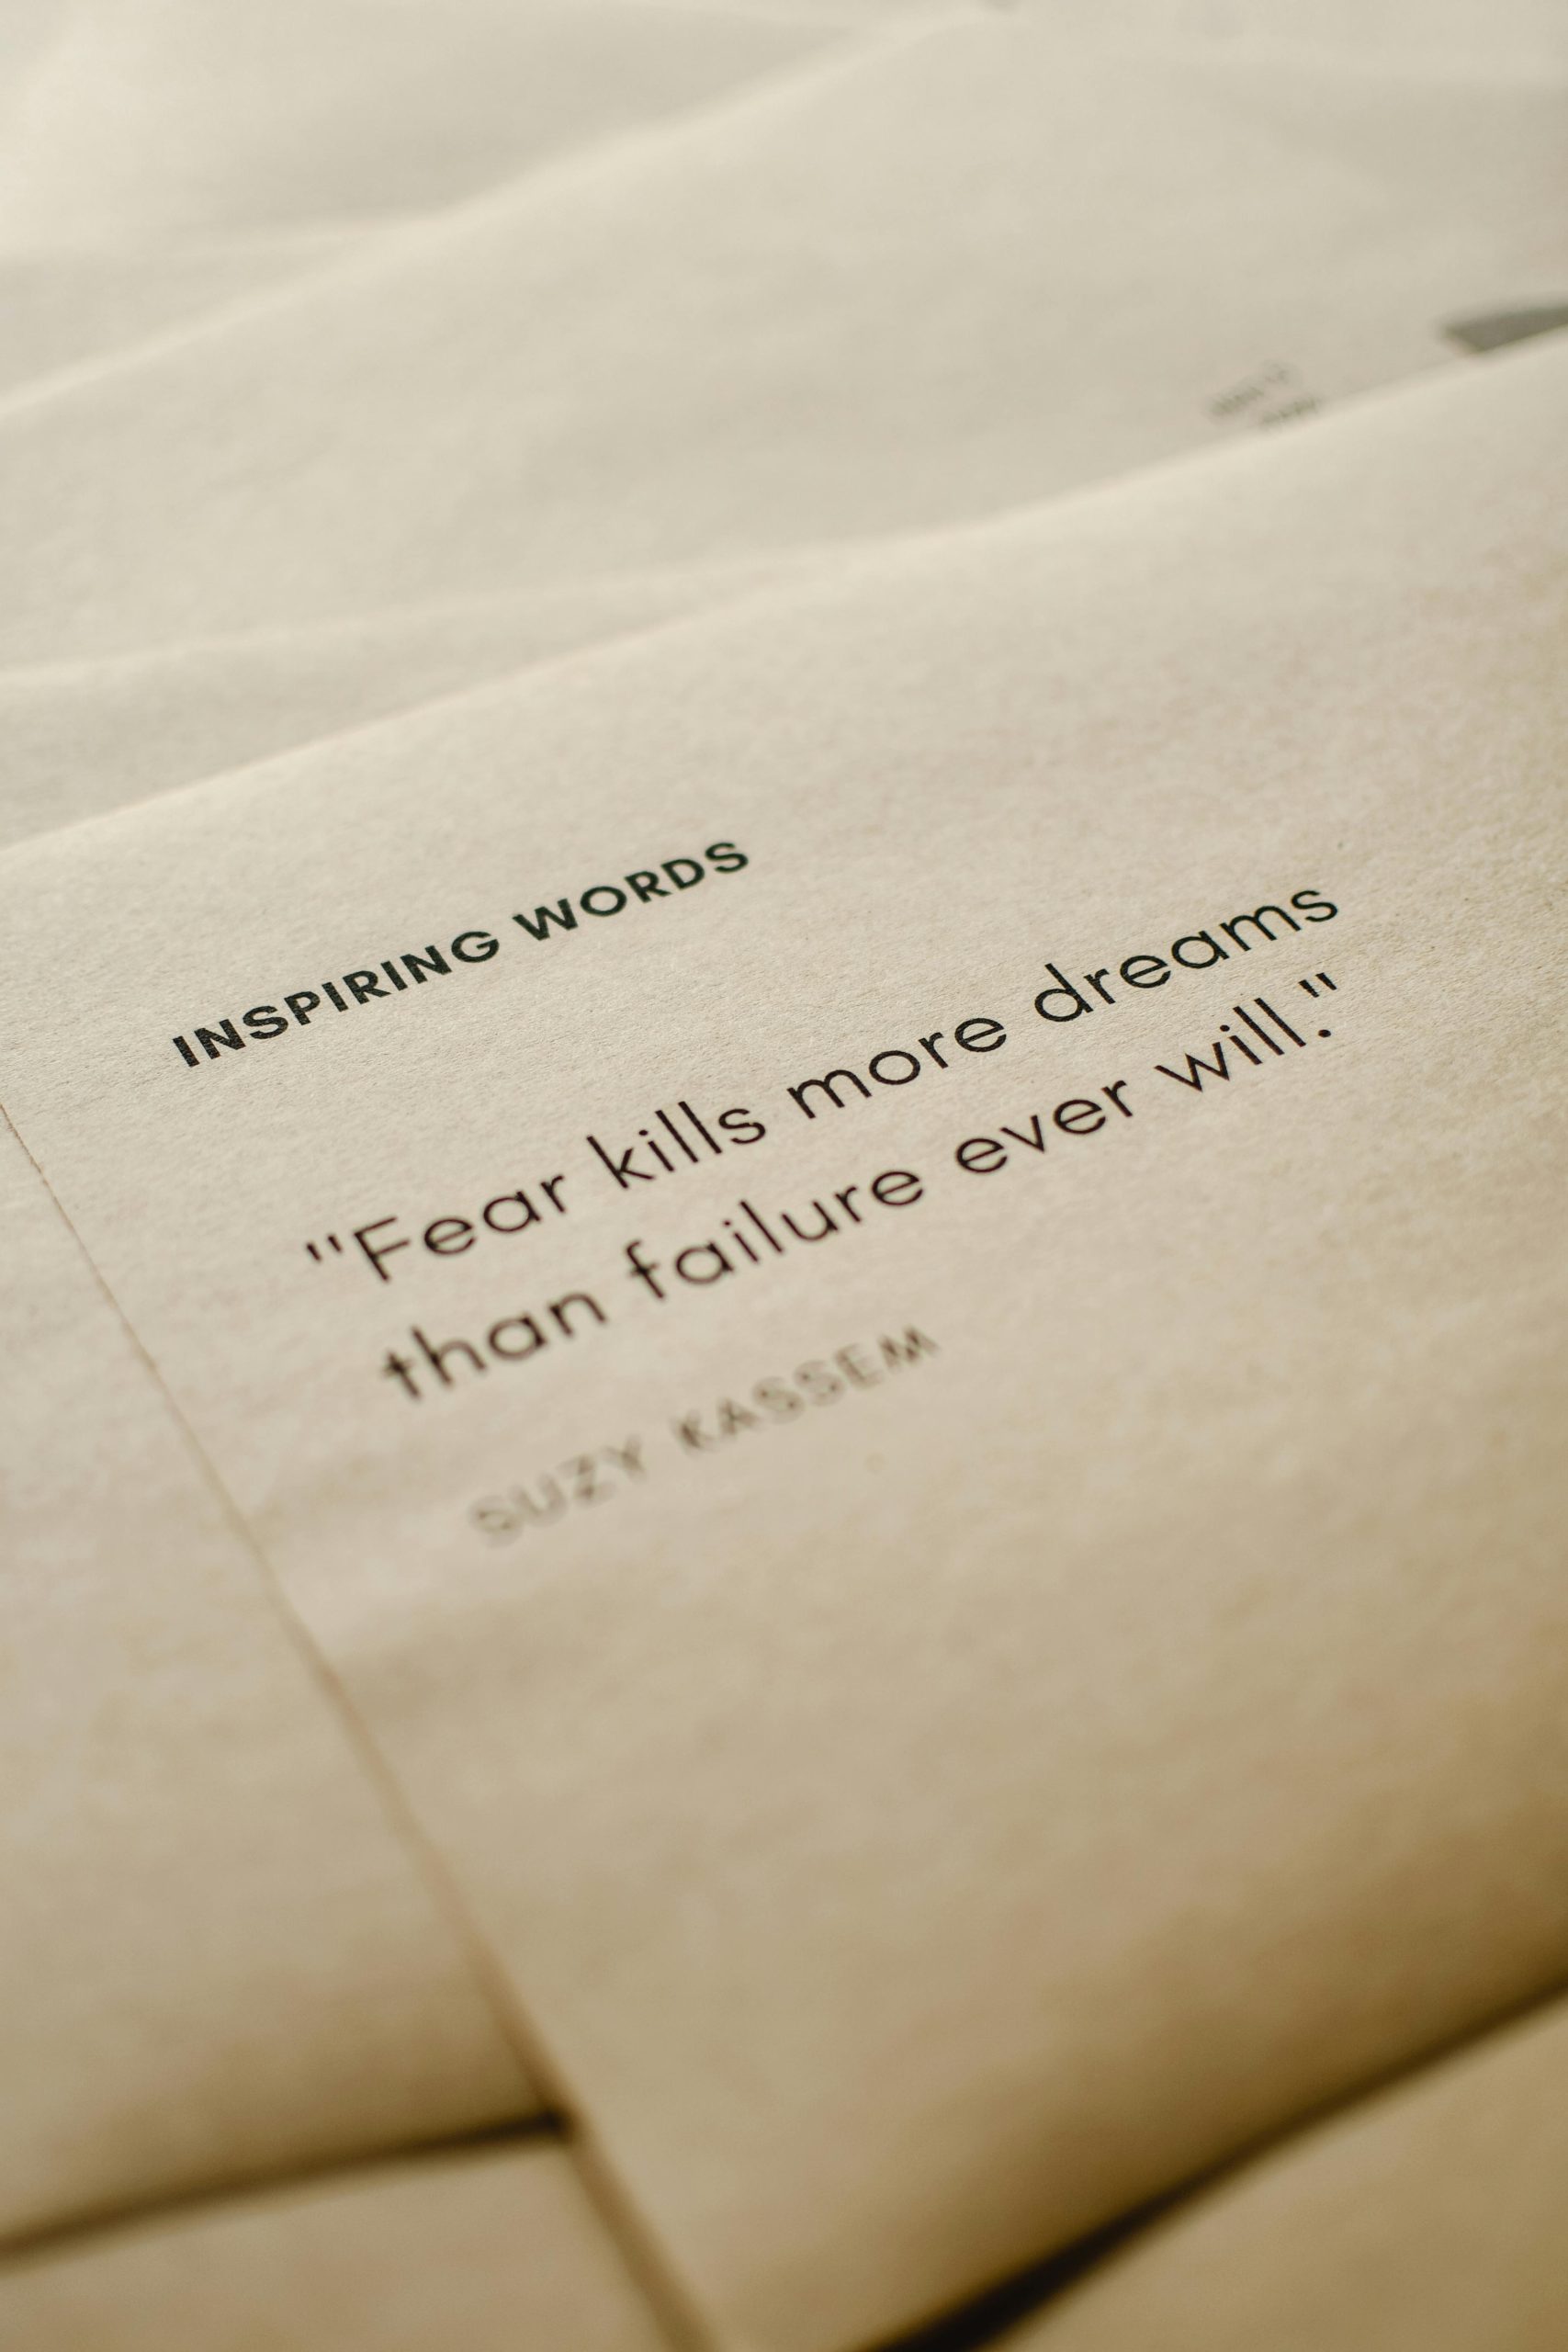 INSPIRING WORDS
"Fear kills more dreams
than failure ever will."
SUZY KASSEM